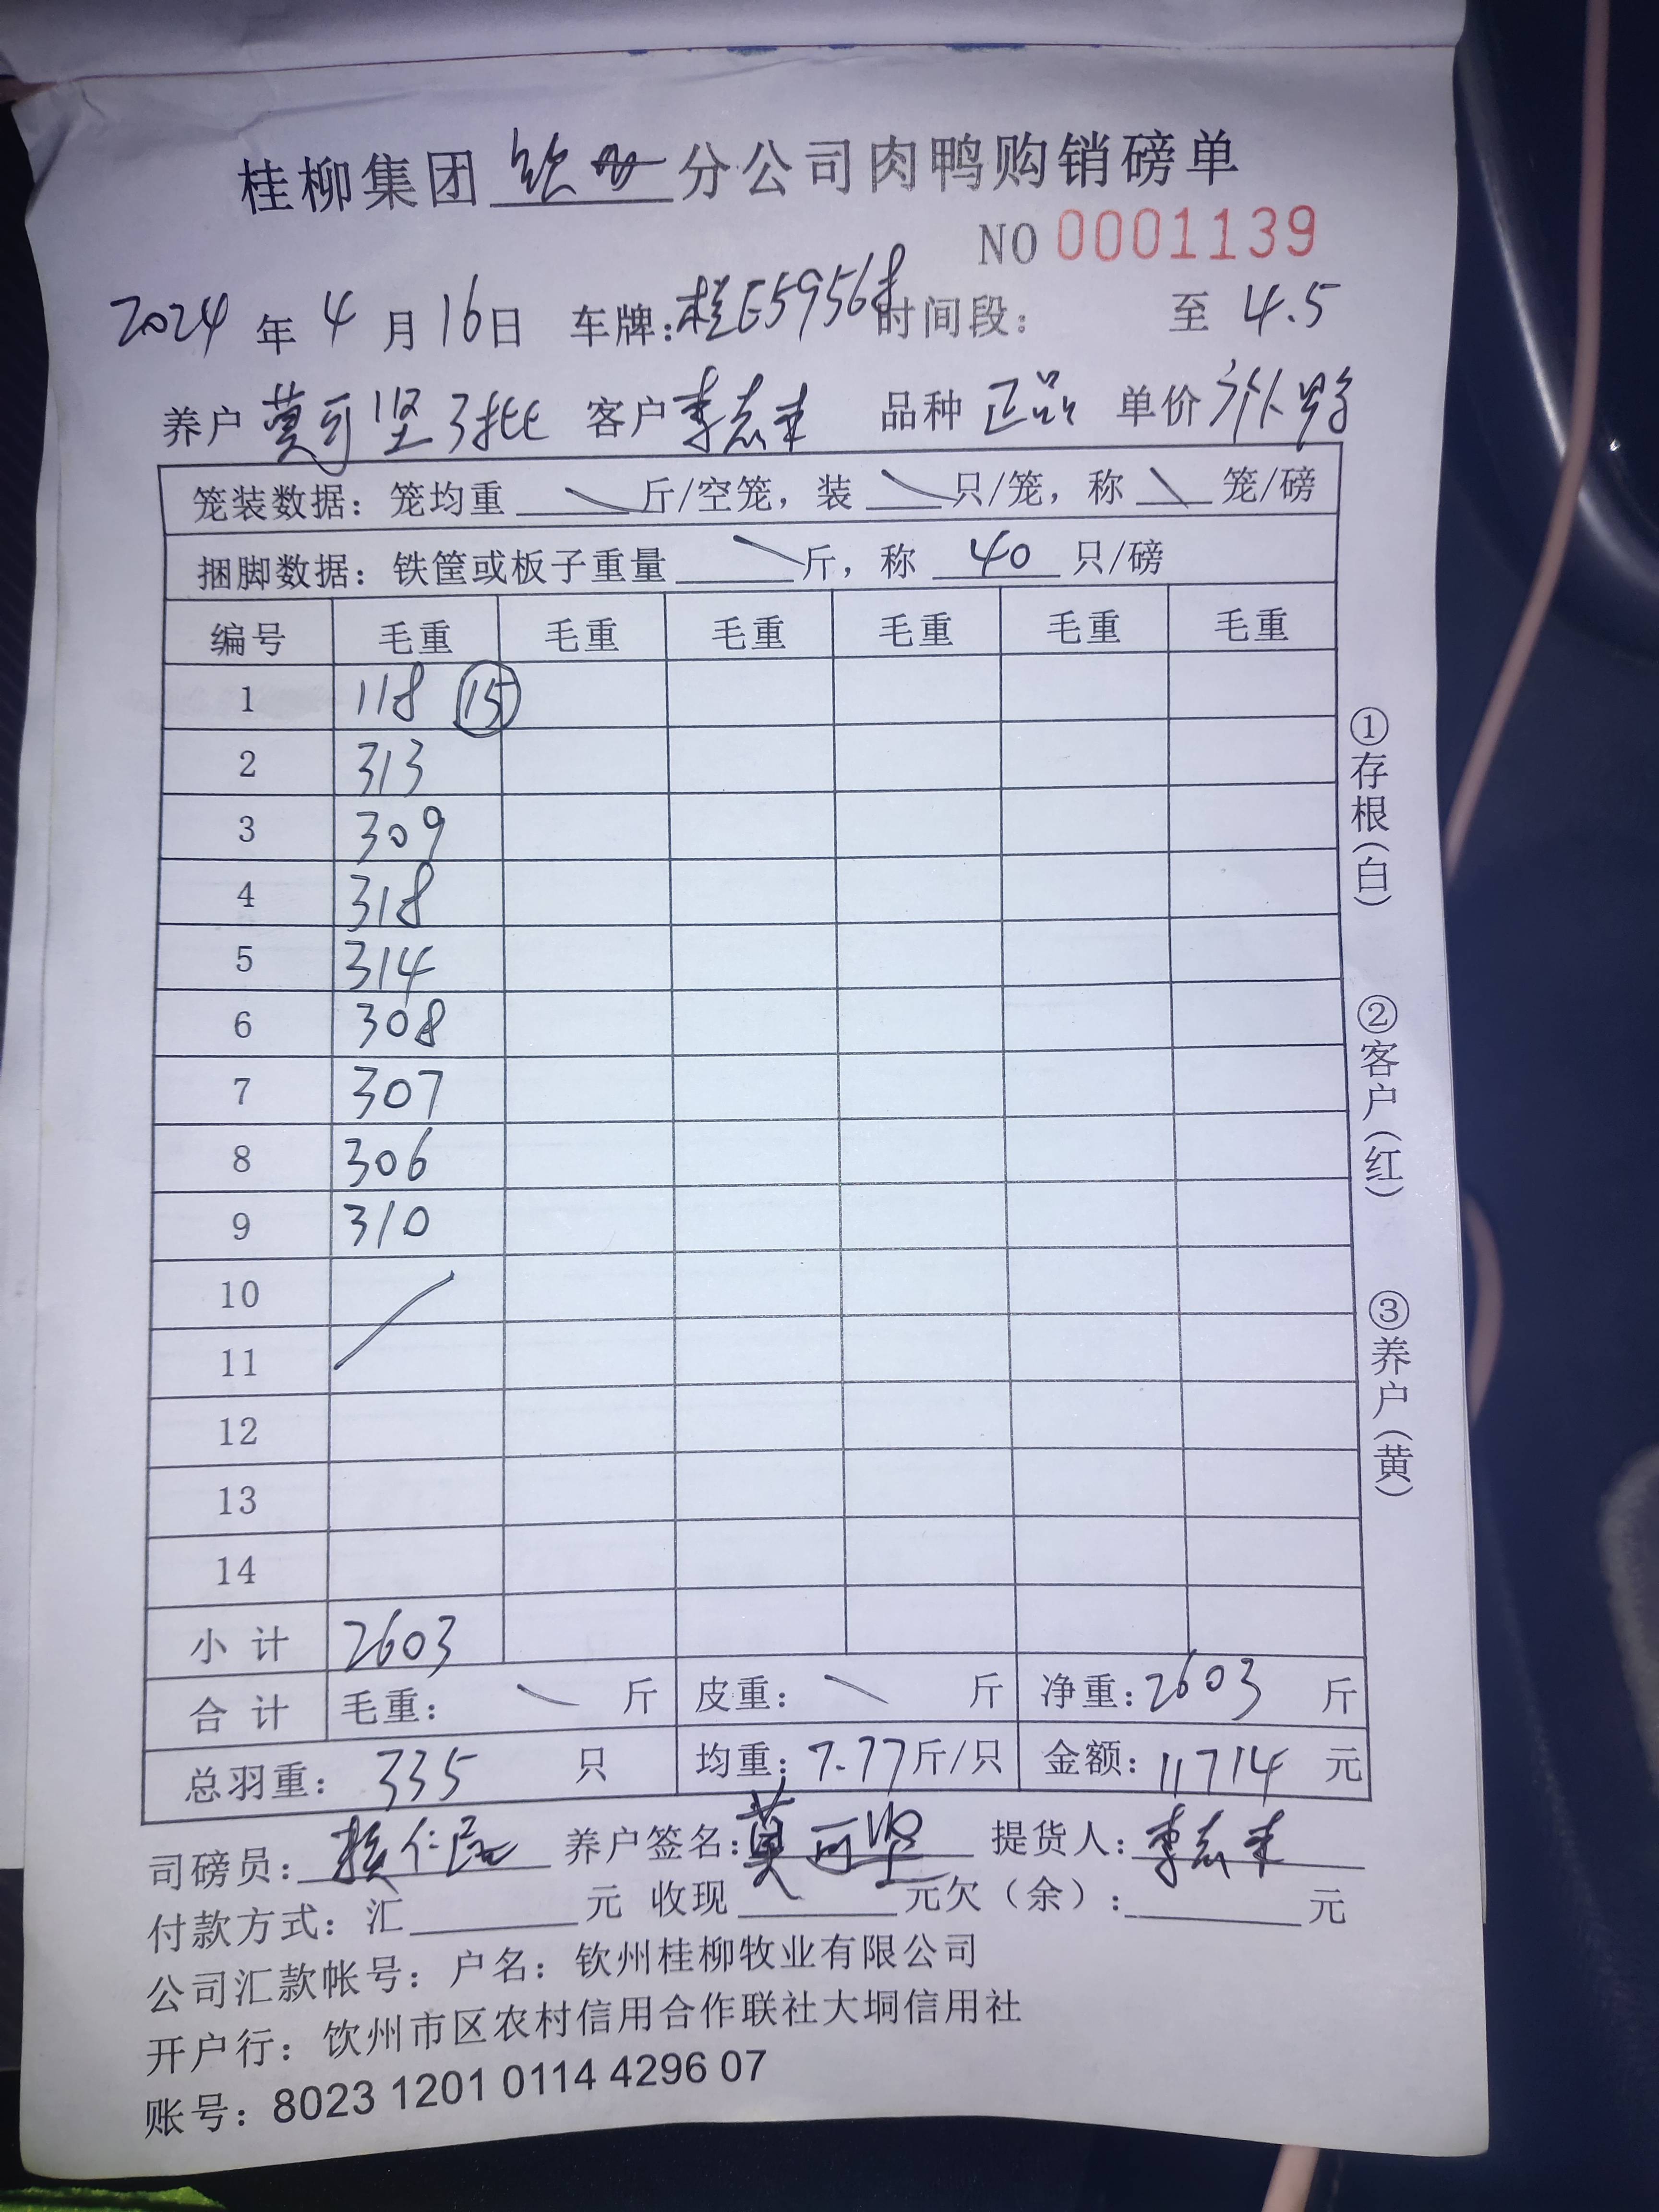 桂柳集团 钦州 分公司肉鸭购销磅单
NO 0001139
2024 年 4 月 16 日 车牌: 桂E5956 时间段: 至 4.5
养户 莫可坚3批 客户 李志来 品种 正品 单价
笼装数据: 笼均重 \ 斤/空笼, 装 \ 只/笼, 称 \ 笼/磅
捆脚数据: 铁筐或板子重量 \ 斤, 称 40 只/磅
编号 毛重 毛重 毛重 毛重 毛重 毛重
1 118 ⑮
2 313
3 309
4 318
5 314
6 308
7 307
8 306
9 310
10 /
11
12
13
14
小 计 2603
合 计 毛重: \ 斤 皮重: \ 斤 净重: 2603 斤
总羽重: 335 只 均重: 7.77 斤/只 金额: 11714 元
司磅员: 养户签名: 莫可坚 提货人: 李志来
付款方式: 汇 元 收现 元欠(余): 元
公司汇款帐号: 户名: 钦州桂柳牧业有限公司
开户行: 钦州市区农村信用合作联社大垌信用社
账号: 8023 1201 0114 4296 07
①存根(白)
②客户(红)
③养户(黄)